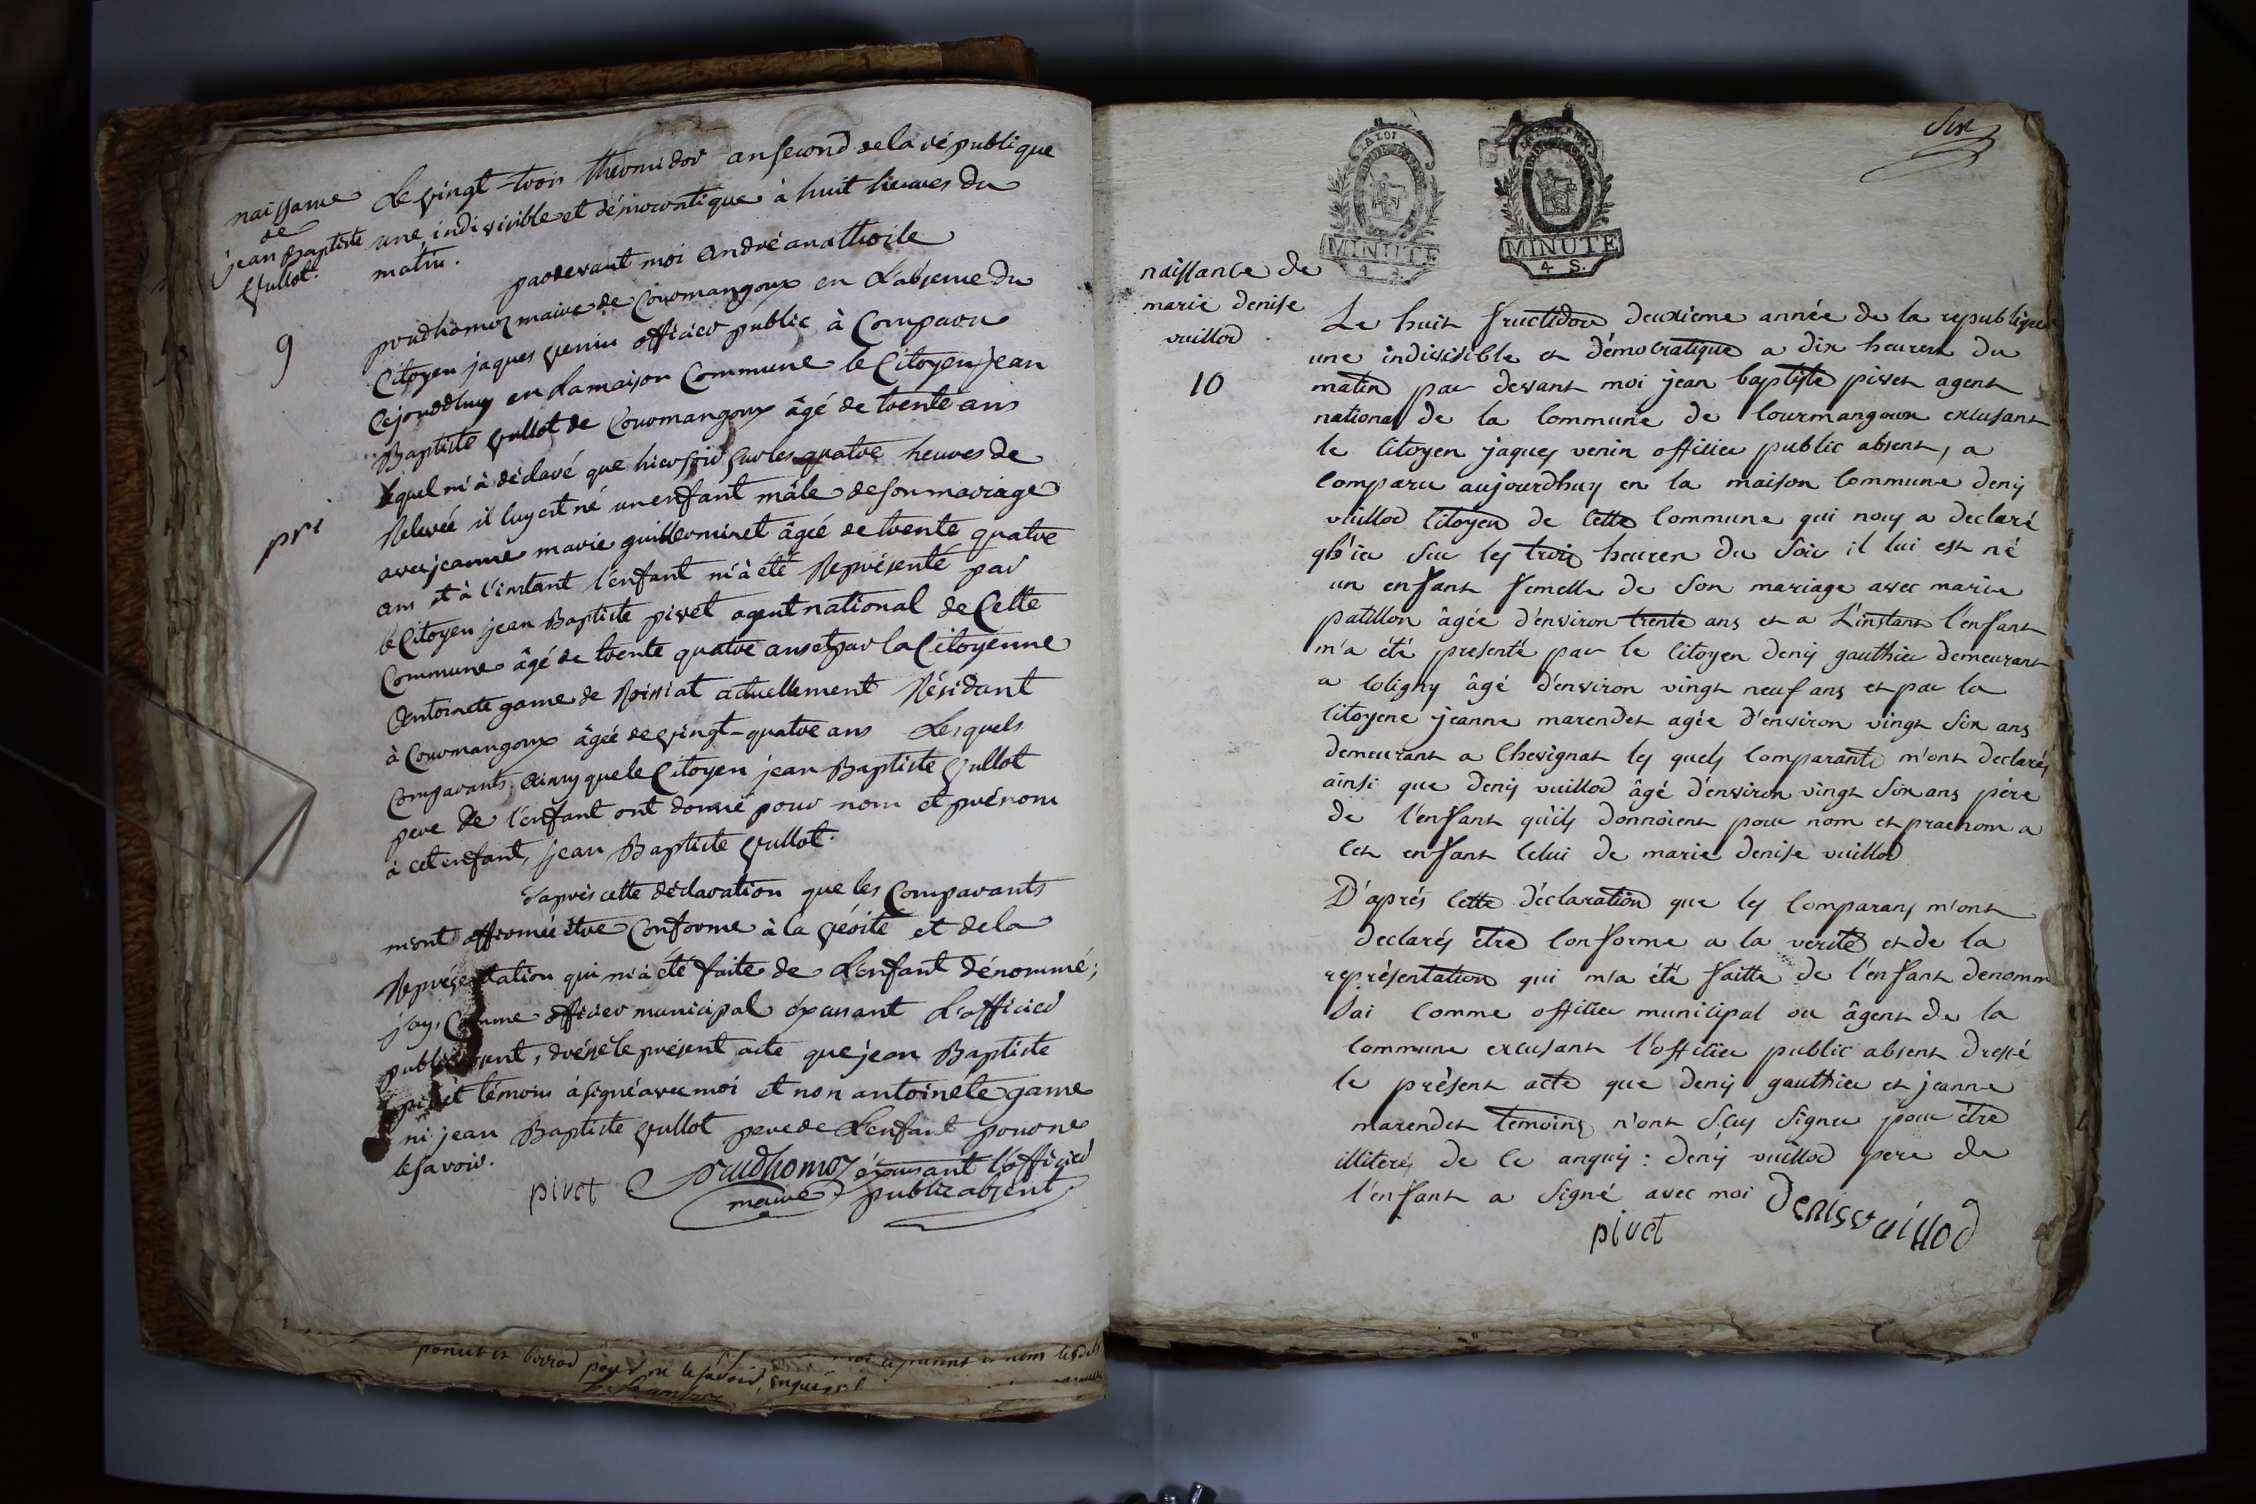 naissance
de
jean Baptiste
Vullot.
9
pri
Le vingt-trois thermidor an second de la république
une indivisible et démocratique à huit heures du
matin.
pardevant moi andré anathoile
prudhomoz maire de Courmangoux en L'absence du
Citoyen jaques Venin officier public à Comparu
Cejourdhuy en La maison Commune le Citoyen jean
Baptiste Vullot de Courmangoux âgé de trente ans
Lequel m'à déclaré que hier soir sur les quatre heures de
Relevée il luy est né un enfant mâle de son mariage
avec jeanne marie guillerminet âgée de trente quatre
ans et à l'instant l'enfant m'à été Représenté par
le Citoyen jean Baptiste pivet agent national de Cette
Commune âgé de trente quatre ans et par la Citoyenne
Antoinete game de Roissiat actuellement Résidant
à Courmangoux âgée de vingt-quatre ans Lesquels
Comparants ainsy que le Citoyen jean Baptiste Vullot
pere de l'enfant ont donné pour nom et prénom
à cet enfant, jean Baptiste Vullot.
D'après cette déclaration que les Comparants
m'ont affirmée être Conforme à la Vérité et de la
Représentation qui m'à été faite de L'enfant dénommé;
j'ay, Comme officier municipal éxcusant L'officier
public absent, dressé le présent acte que jean Baptiste
pivet témoin à signé avec moi et non antoinete game
ni jean Baptiste Vullot pere de L'enfant pour ne
le savoir.
pivet prudhomoz éxcusant l'officier
maire public absent
poncet et
pour ne le savoir, enquis
Six
LA LOI
MINUTE
4 S.
MINUTE
4 S.
naissance de
marie denise
vuillod
10
Le huit fructidor deuxieme année de la republique
une indivisible et démocratique a dix heures du
matin par devant moi jean baptiste pivet agent
national de la Commune de Courmangoux excusant
le Citoyen jaques venin officier public absent, a
Comparu aujourdhuy en la maison Commune denis
vuillod Citoyen de Cette Commune qui nous a declaré
qh'ier sur les trois heures du soir il lui est né
un enfant femelle de son mariage avec marie
patillon âgée d'environ trente ans et a L'instant l'enfant
m'a été presenté par le Citoyen denis gauthier demeurant
a Coligny âgé d'environ vingt neuf ans et par la
Citoyene jeanne marendet agée d'environ vingt six ans
demeurant a Chevignat les quels Comparants m'ont declarés
ainsi que denis vuillod âgé d'environ vingt six ans père
de l'enfant qu'ils donnoient pour nom et praenom a
Cet enfant Celui de marie denise vuillod
D'aprés Cette déclaration que les Comparans m'ont
declarés être Conforme a la verité et de la
représentation qui m'a été faitte de l'enfant denomm
Jai Comme officier municipal ou âgent de la
Commune excusant l'officier public absent dressé
le présent acte que denis gauthier et jeanne
marendet temoins n'ont sçus signer pour être
illiterés de Ce anquis : denis vuillod pere de
l'enfant a signé avec moi denis vuillod
pivet